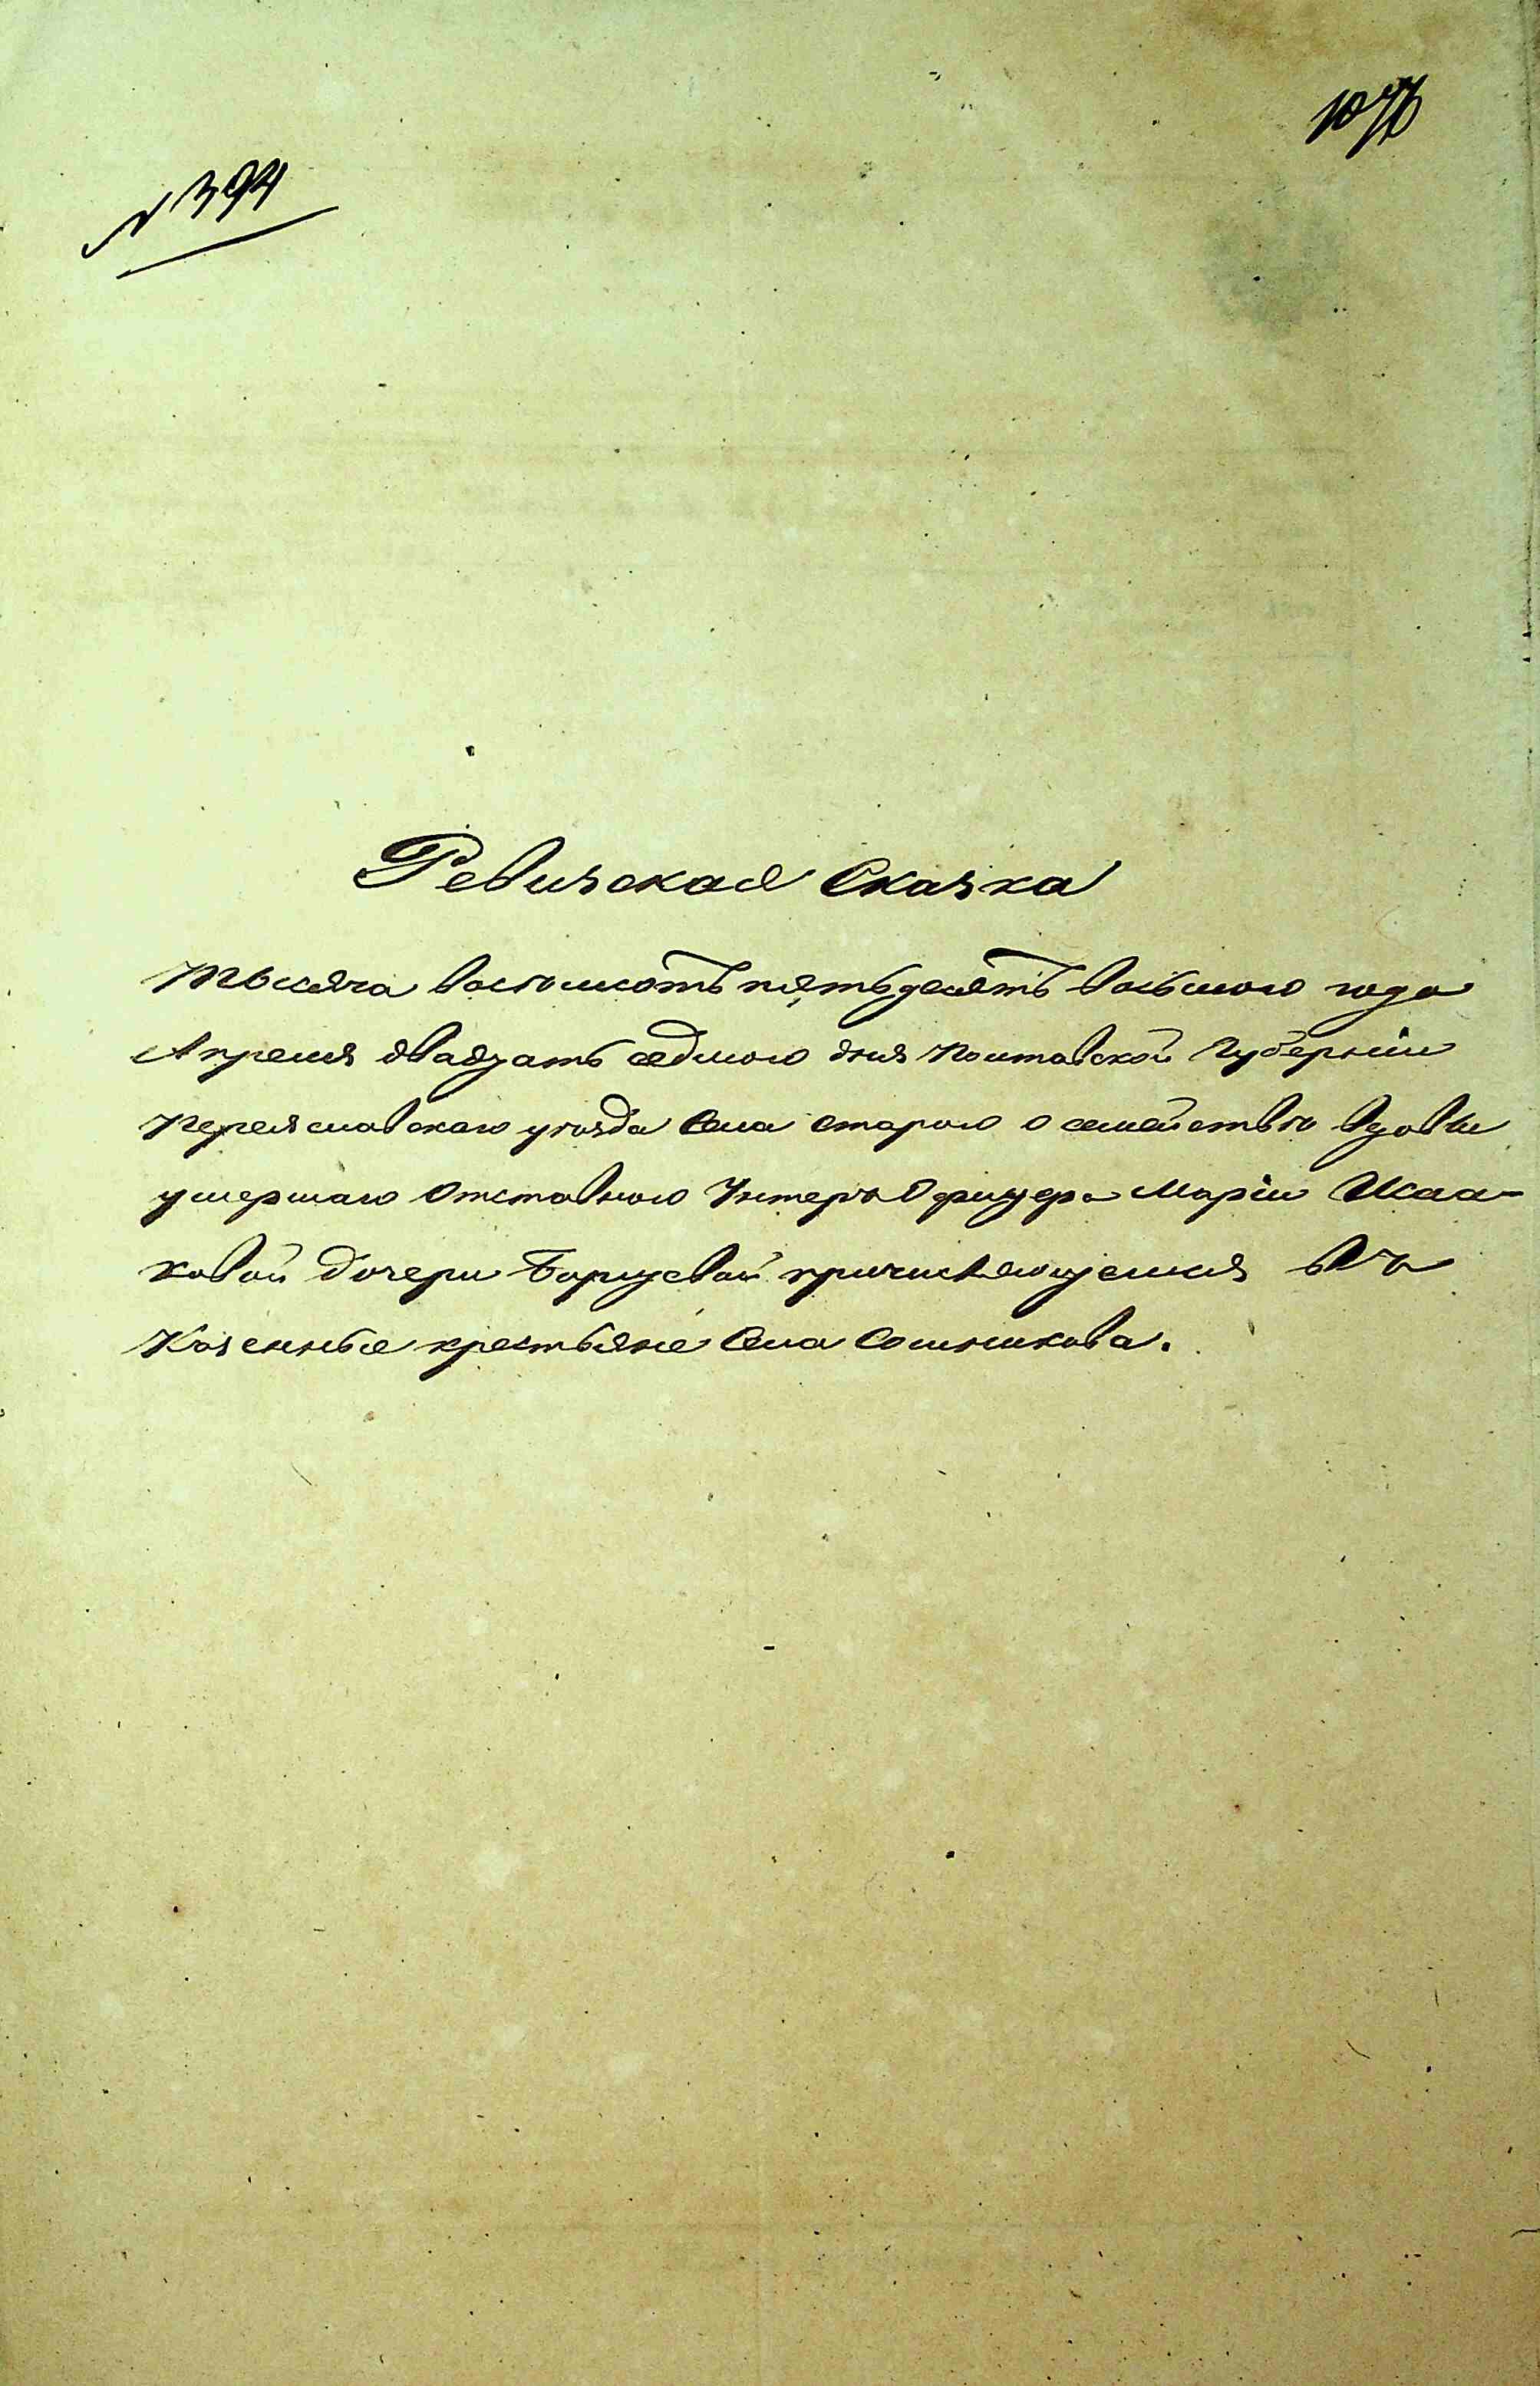 1076
№ 394
Ревизская Сказка
Тысяча восемьсотъ пятьдесятъ восьмого года
Апреля двадцать седмого дня Полтавской Губерніи
Переяславскаго уѣзда Села Старого о семействѣ вдовы
умершаго Отставного Унтеръ Офицера Маріи Исаа-
ковой дочери Борщевой причисляющемся въ
Казенные крестьяне Села Сошникова.